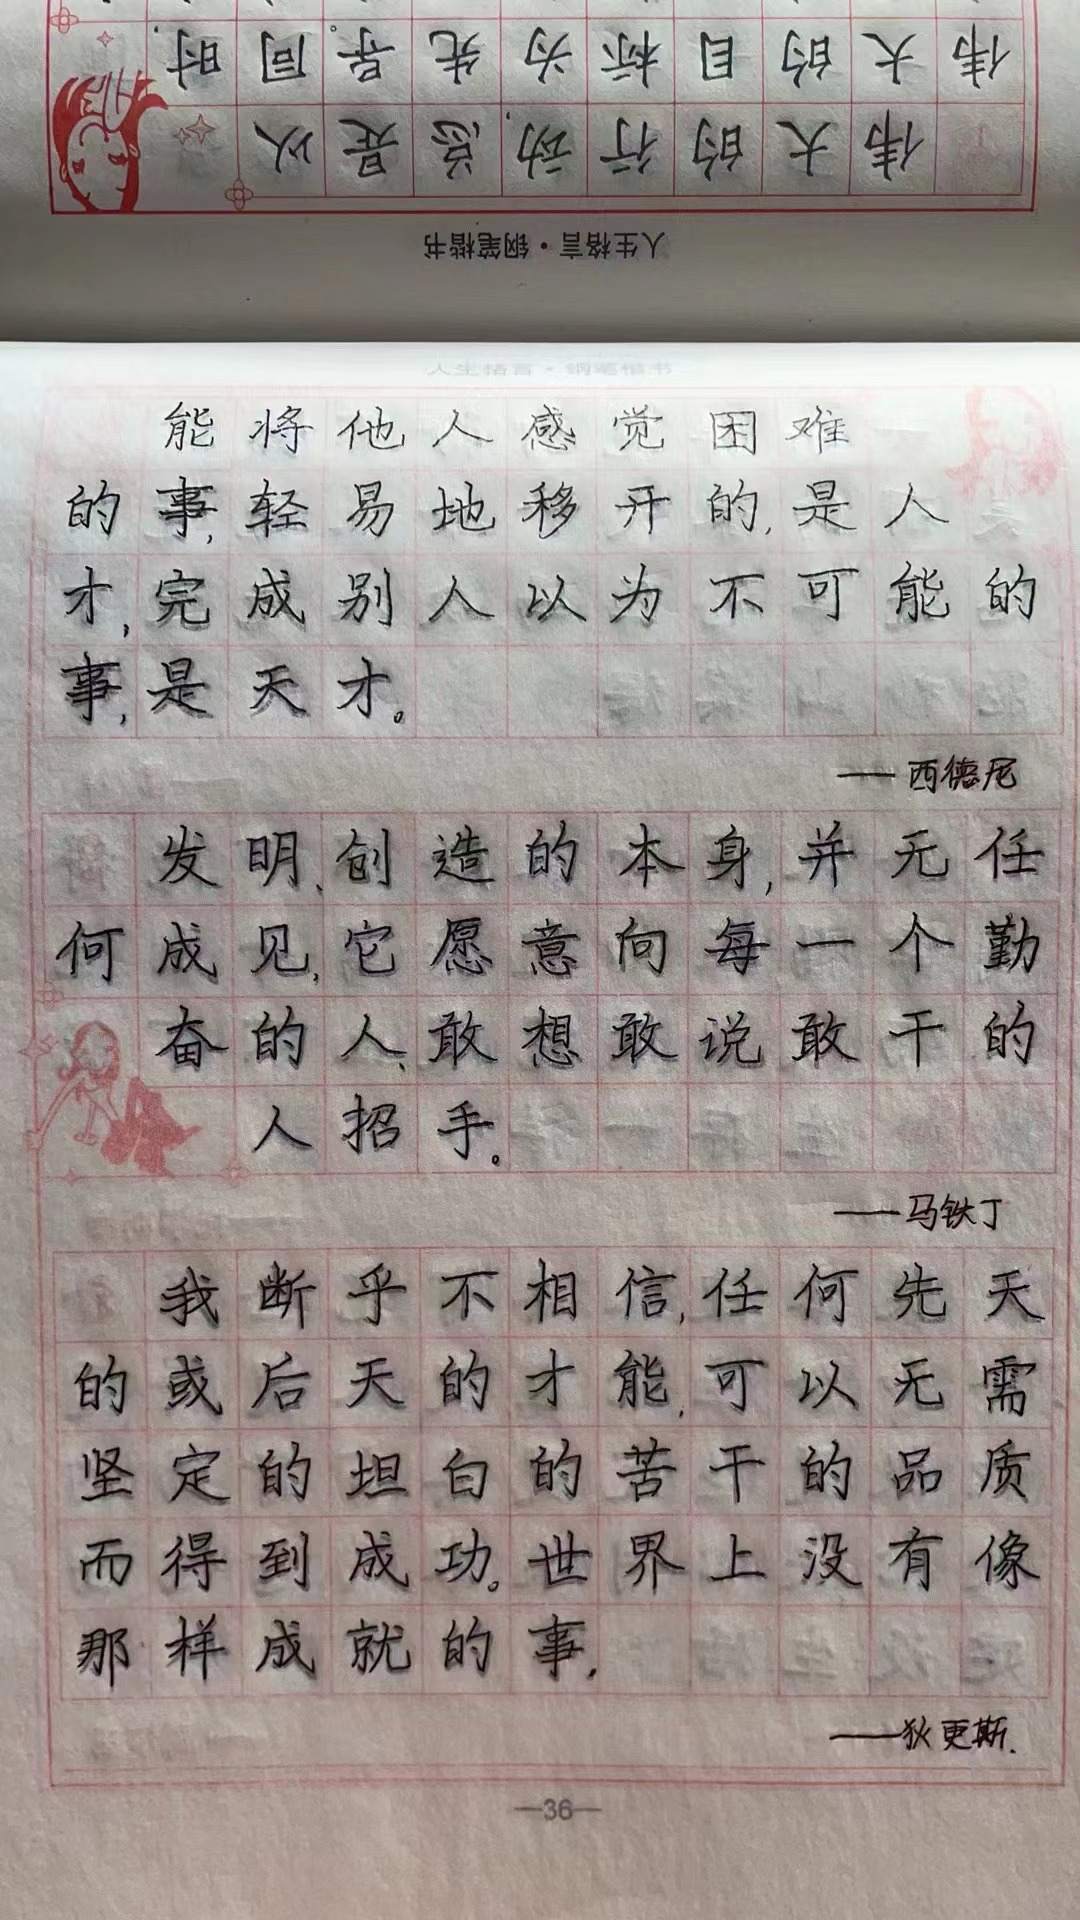 人生格言·钢笔楷书
伟大的行动,总是以
伟大的目标为先导。同时,
人生格言·钢笔楷书
能将他人感觉困难
的事,轻易地移开的,是人
才,完成别人以为不可能的
事,是天才。
——西德尼
发明、创造的本身,并无任
何成见,它愿意向每一个勤
奋的人、敢想敢说敢干的
人招手。
——马铁丁
我断乎不相信,任何先天
的或后天的才能,可以无需
坚定的坦白的苦干的品质
而得到成功。世界上没有像
那样成就的事.
——狄更斯.
—36—